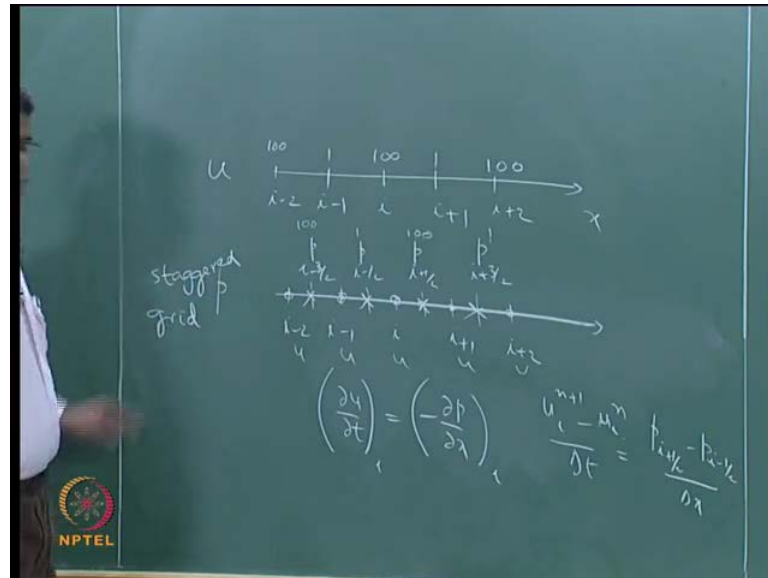 100 1 100 1 100
u
i-2 i-1 i i+1 i+2 x
100 1 100 1
p p p p
i-3/2 i-1/2 i+1/2 i+3/2
staggered
p
grid
i-2 i-1 i i+1 i+2
u u u u u
(∂u/∂t)_i = (-∂p/∂x)_i
(u_i^{n+1} - u_i^n)/Δt = (p_{i+1/2} - p_{i-1/2})/Δx
NPTEL